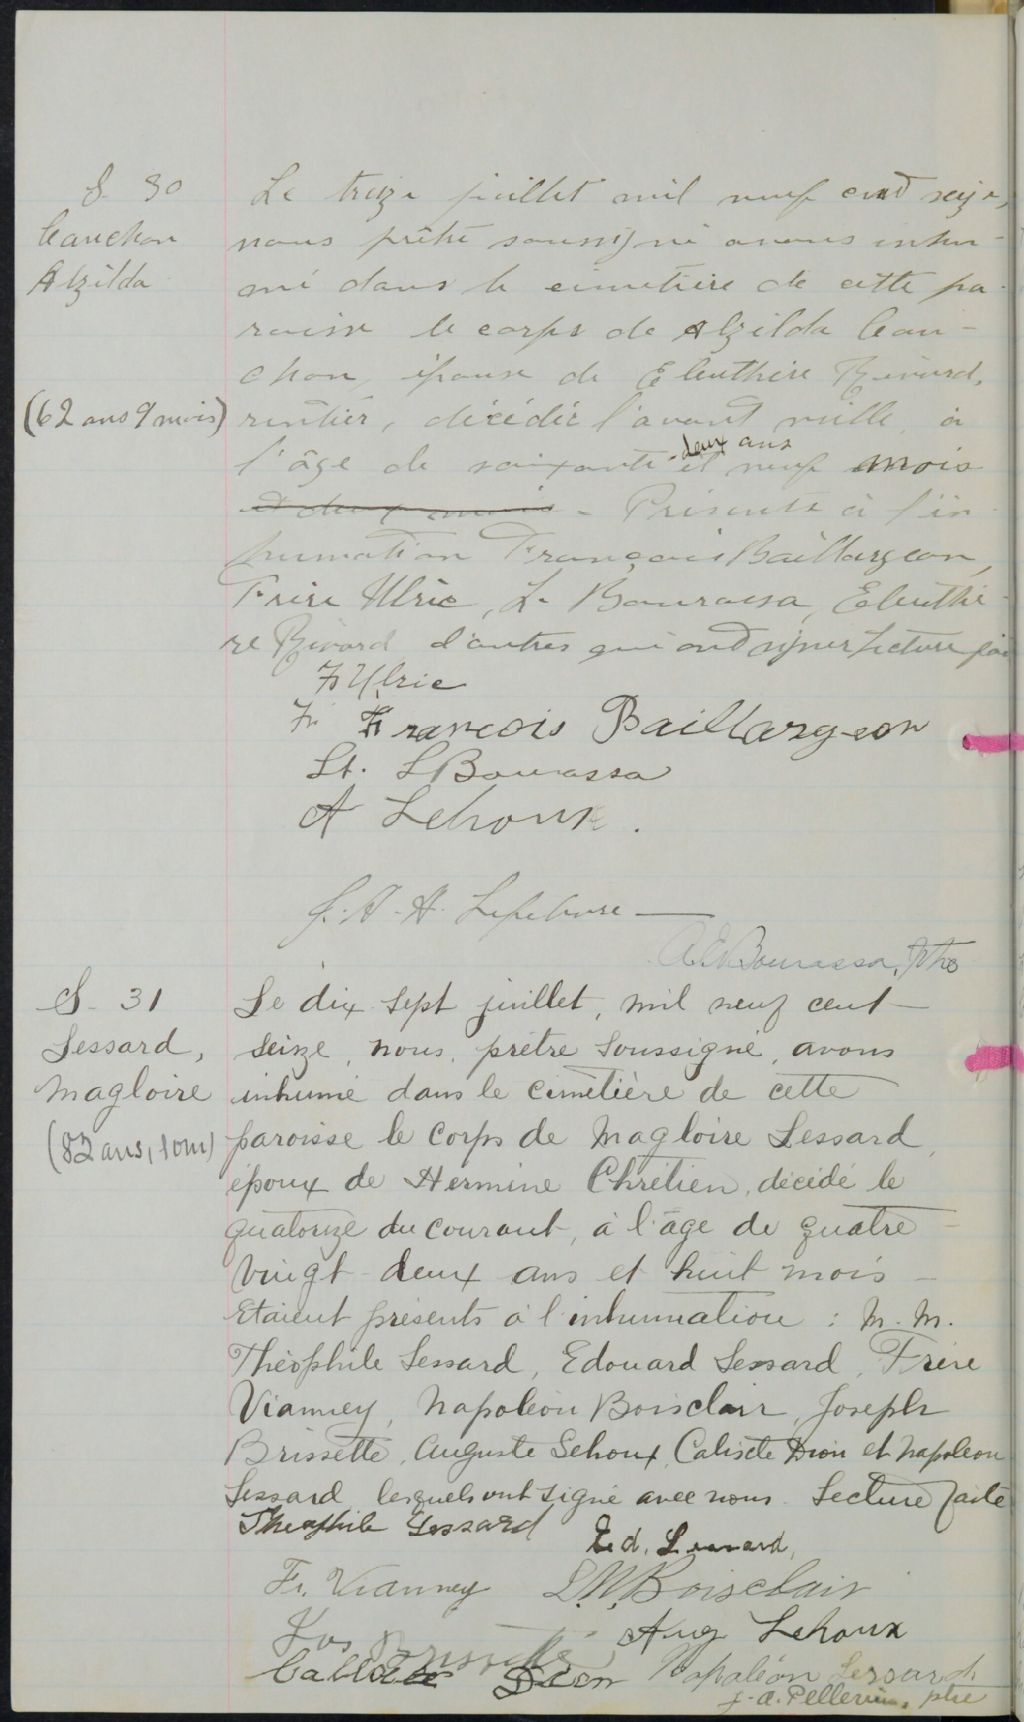 S. 30
Cauchon
Alzilda
(62 ans 9 mois)
Le treize juillet mil neuf cent seize,
nous prêtre soussigné avons inhu-
mé dans le cimetière de cette pa-
roisse le corps de Alzilda Cau-
chon, épouse de Eleuthère Rivard,
rentier, décédée l'avant veille, à
l'âge de soixante-deux ans et neuf mois
et deux mois - Présents à l'in-
humation François Baillargeon,
Frère Ulric, L. Bourassa, Eleuthè-
re Rivard d'autres qui ont signer Lecture fai
Fr Ulric
Fr François Baillargeon
St. L Bourassa
A Lehoux.
J. A. H. Lefebvre
A.E. Bourassa, Ptre
S. 31
Lessard,
Magloire
(82 ans, 10m)
Le dix-sept juillet, mil neuf cent
seize, nous, prêtre soussigné, avons
inhumé dans le cimetière de cette
paroisse le corps de Magloire Lessard,
époux de Hermine Chrétien, décédé le
quatorze du courant, à l'âge de quatre-
vingt-deux ans et huit mois -
Etaient présents à l'inhumation : M. M.
Théophile Lessard, Edouard Lessard, Frère
Vianney, Napoléon Boisclair, Joseph
Brissette, Auguste Lehoux, Calixte Dion et Napoléon
Lessard lesquels ont signé avec nous. Lecture faite
Theophile Lessard
Ed. Lessard,
Fr. Vianney
L.N. Boisclair
Jos Brissette
Aug Lehoux
Calixte Dion
Napoléon Lessard
J-A. Pellerin, ptre